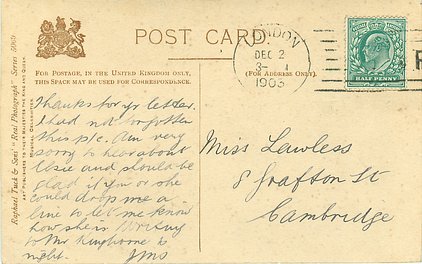 POST CARD
FOR POSTAGE, IN THE UNITED KINGDOM ONLY,
THIS SPACE MAY BE USED FOR CORRESPONDENCE.
(FOR ADDRESS ONLY.)
LONDON
DEC 2
3-
1903
HALF PENNY
Raphael Tuck & Sons' "Real Photograph" Series
ART PUBLISHERS TO THEIR MAJESTIES THE KING AND QUEEN.
Thanks for yr letter.
I had not forgotten
this p/c. Am very
sorry to hear about
Elsie and should be
glad if you or she
could drop me a
line to let me know
how she is. Writing
to Mr
night. JMS
Miss Lawless
8 Grafton St
Cambridge